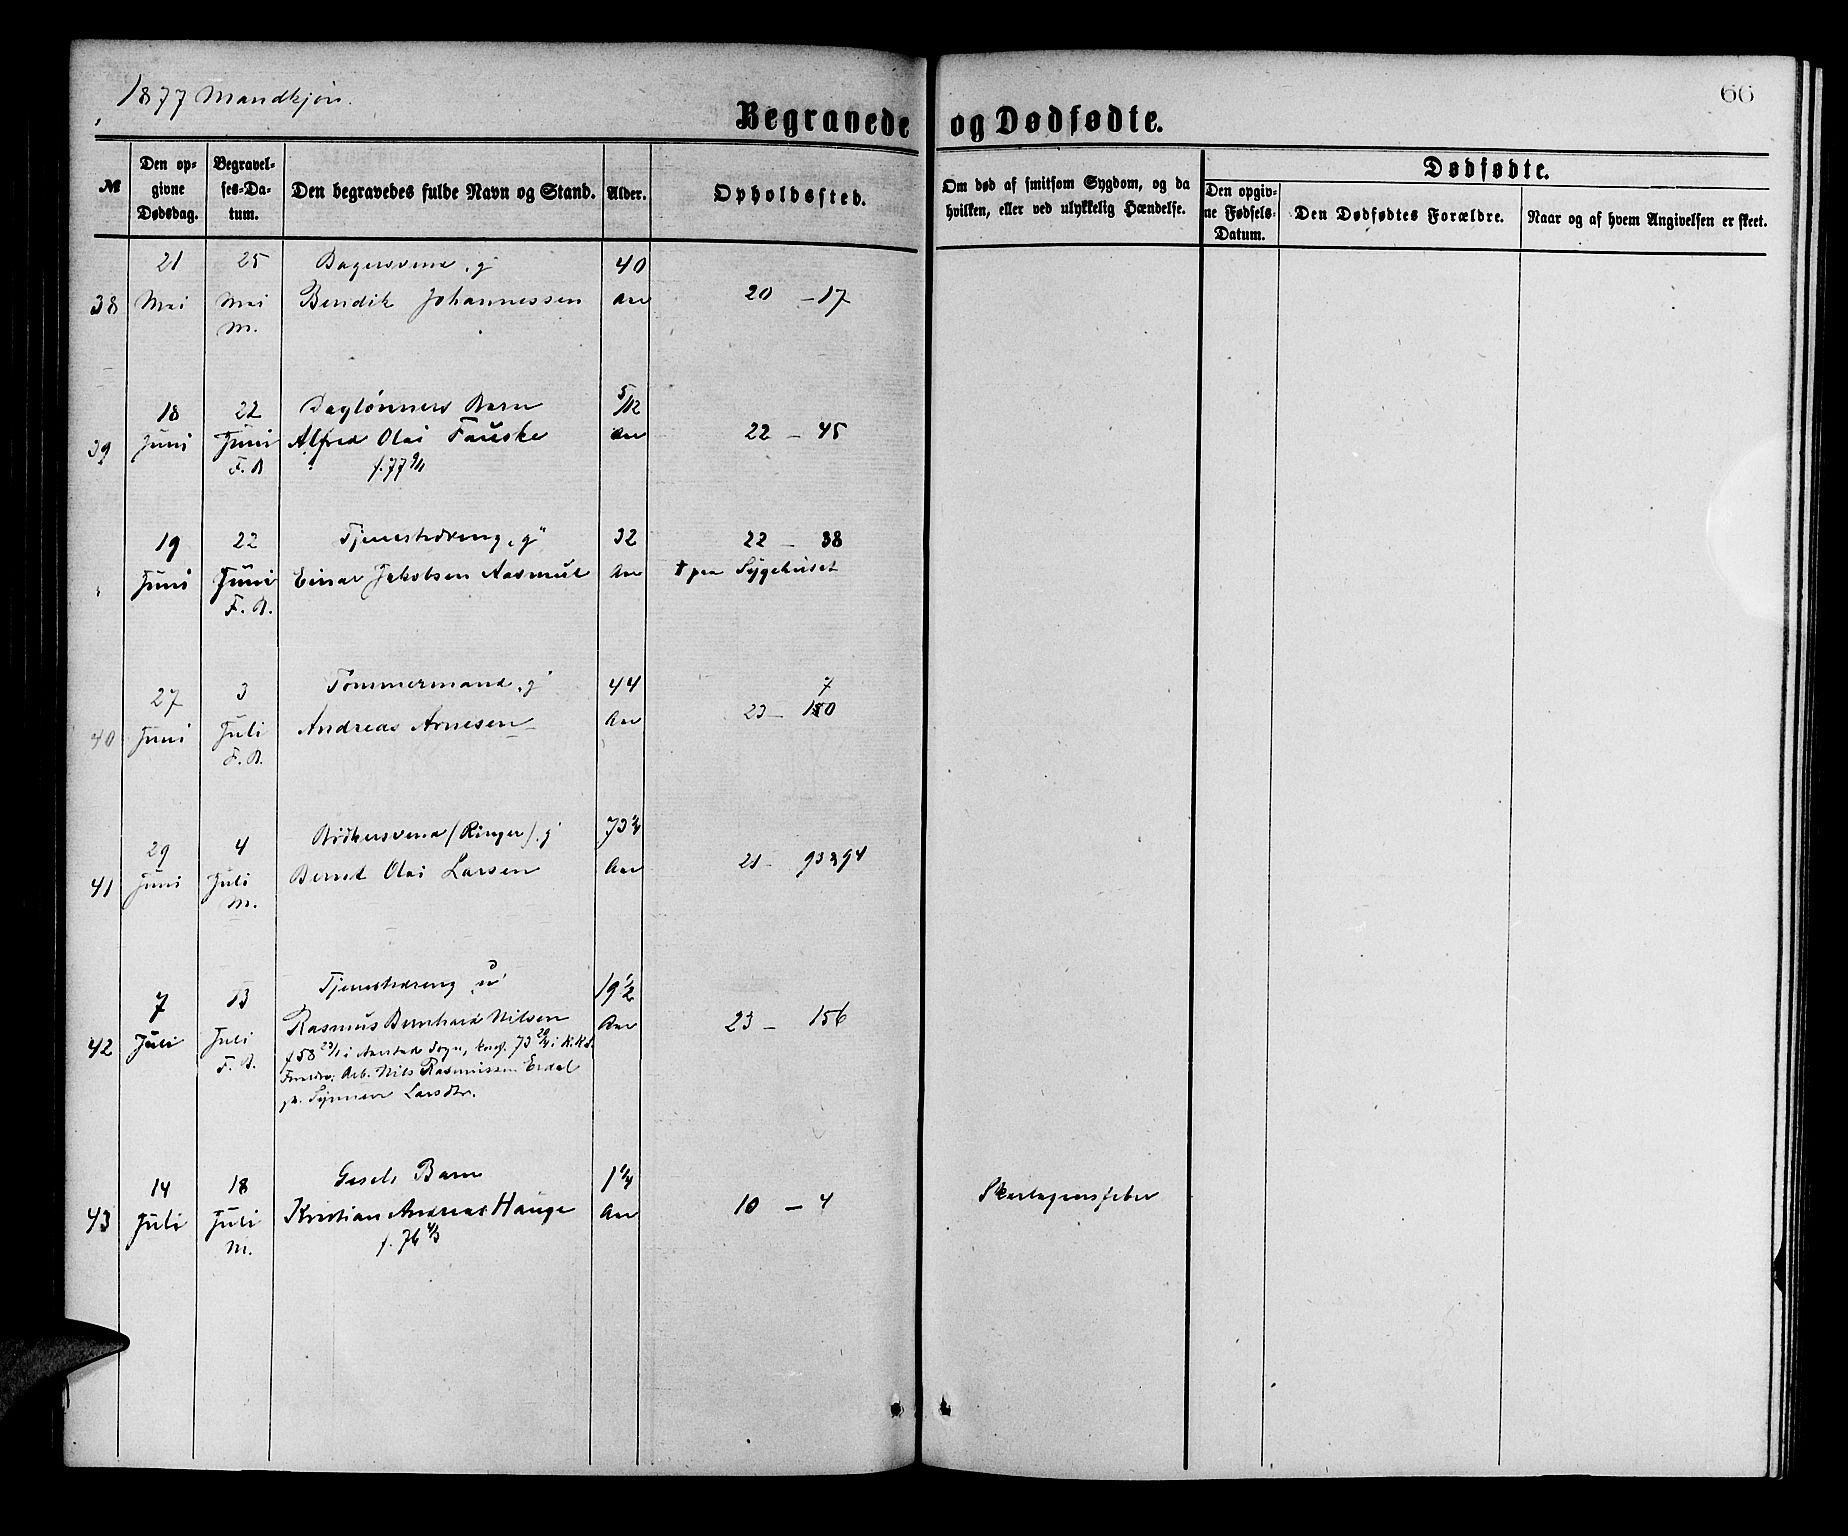 1877 Mandkjøn.
66
Begravede og Dødfødte.
№
Den opgivne Dødsdag.
Begravelses-Datum.
Den begravedes fulde Navn og Stand.
Alder.
Opholdssted.
Om død af smitsom Sygdom, og da hvilken, eller ved ulykkelig Hændelse.
Dødfødte.
Den opgivne Fødsels-Datum.
Den Dødfødtes Forældre.
Naar og af hvem Angivelsen er skeet.
21 25 Bagersvend, g 40
38 Mai Mai Bendik Johannessen Aar 20 - 17
M.
18 22 Daglønners Barn 5/12
39 Juni Juni Alfred Olai Fauske Aar 22 - 45
F. B f. 77 9/1
19 22 Tjenestedreng, g 32 22 - 38
Juni Juni Einar Jakobsen Aasmul Aar † paa Sygehuset
F. B.
27 3 Tømmermand, g 44 7
40 Juni Juli Andreas Arnesen Aar 23 - 180
F. B.
29 4 Bødkersvend (Ringer), g 73 1/4
41 Juni Juli Berret Olai Larsen Aar 21 - 93 & 94
M.
7 13 Tjenestedreng u 19 1/2
42 Juli Juli Rasmus Bernhard Nilsen Aar 23 - 156
F. B. f 58 23/1 i Aarstad Sogn, konf. 73 20/4 i K.K.
Forældre: Arb. Nils Rasmussen Erdal
Synneve Larsdtr.
14 18 Gesels Barn 1 1/4
43 Juli Juli Kristian Andreas Hauge Aar 10 - 4 Skarlagensfeber
M. f. 76 4/3